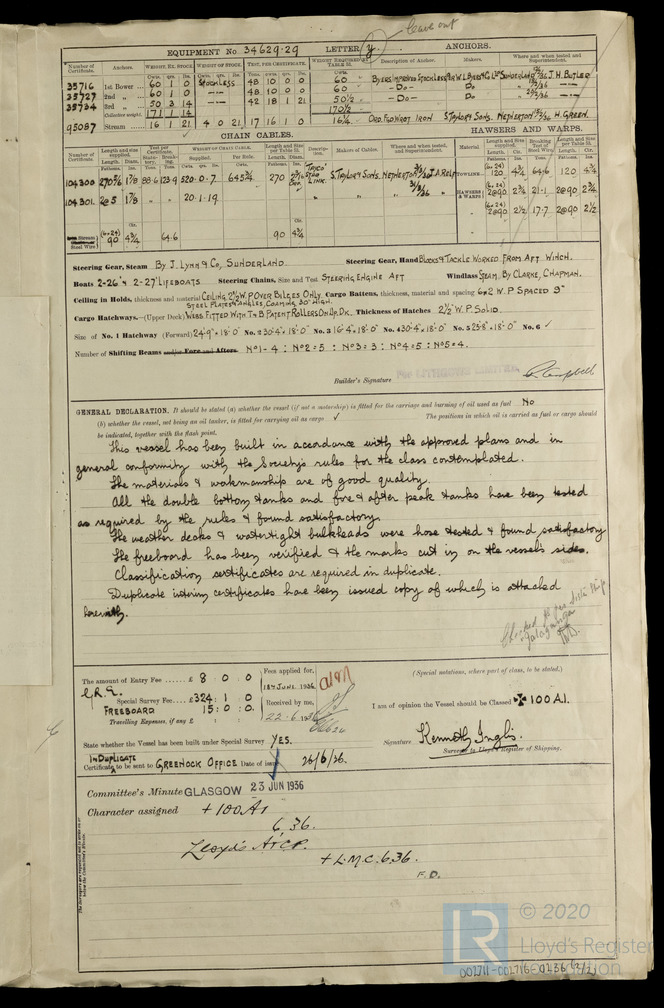 leave out
EQUIPMENT No 34629.29 LETTER y ANCHORS.
Number of Certificate. Anchors. WEIGHT, EX. STOCK. WEIGHT OF STOCK. TEST, PER CERTIFICATE. WEIGHT REQUIRED TABLE 31. Description of Anchor. Makers. Where and when tested and Superintendent.
35716 1st Bower 60 1 0 Stockless 48 10 0 0 60 BYERS IMPROVED STOCKLESS W.L. BYERS & Co Ltd SUNDERLAND J.H. BUTLER
35727 2nd 60 1 0 48 10 0 0 60 - Do - Do
35734 3rd 50 3 14 42 18 1 21 50½ - Do - Do
Collective weight 171 1 14 170½
95087 Stream 16 1 21 4 0 21 17 16 1 0 16¼ ORD. FLO WROT IRON S TAYLOR & SONS. NETHERTON H. GREEN.
CHAIN CABLES. HAWSERS AND WARPS.
Number of Certificate. Length and size supplied. Test per Certificate. WEIGHT OF CHAIN CABLE. Length and size per Table 31. Description. Makers of Cables. Where and when tested, and Superintendent. Material. Length and size supplied. Breaking Test of Steel Wire. Length and size per Table 31.
104300 270 5/6 1 7/8 88.6 123.9 520.0.7 645¾ 270 "TAYCO" STUD LINK. S. TAYLOR & SONS. NETHERTON J.A. RELF TOWLINE 120 4¾ 64.6 120 4¾
104301. 2@5 1 7/8 20.1.19 HAWSERS & WARPS 2@90 2¾ 21.1 2@90 2¾
2@90 2½ 17.7 2@90 2½
Stream Steel Wire (6x24) 90 4¾ 64.6 90 4¾
Steering Gear, Steam By J. Lynn & Co, SUNDERLAND Steering Gear, Hand BLOCKS & TACKLE WORKED FROM AFT WINCH.
Boats 2-26' & 2-27' LIFEBOATS Steering Chains, Size and Test STEERING ENGINE AFT Windlass STEAM, BY CLARKE, CHAPMAN.
Ceiling in Holds, thickness and material CEILING 2½" W.P OVER BILGES ONLY Cargo Battens, thickness, material and spacing 6x2 W.P SPACED 9"
STEEL PLATES & ANGLES, COAMING 30" HIGH.
Cargo Hatchways.—(Upper Deck) WEBS FITTED WITH T&B PATENT ROLLERS ON UP. DK. Thickness of Hatches 2½" W.P. SOLID.
Size of No. 1 Hatchway (Forward) 24'-9" x 18'-0" No. 2 30'-4" x 18'-0" No. 3 16'-4" x 18'-0" No. 4 30'-4" x 18'-0" No. 5 25'-8" x 18'-0" No. 6 ✓
Number of Shifting Beams and/or Fore and Afters. No 1 - 4 : No 2 = 5 : No 3 = 3 : No 4 = 5 : No 5 = 4.
Builder's Signature
GENERAL DECLARATION. It should be stated (a) whether the vessel (if not a motorship) is fitted for the carriage and burning of oil used as fuel No
(b) whether the vessel, not being an oil tanker, is fitted for carrying oil as cargo ✓ The positions in which oil is carried as fuel or cargo should
be indicated, together with the flash point.
This vessel has been built in accordance with the approved plans and in
general conformity with the Society's rules for the class contemplated.
The materials & workmanship are of good quality.
All the double bottom tanks and fore & after peak tanks have been tested
as required by the rules & found satisfactory.
The weather decks & watertight bulkheads were hose tested & found satisfactory
The freeboard has been verified & the marks cut in on the vessel's sides.
Classification certificates are required in duplicate.
Duplicate interim certificates have been issued copy of which is attached
herewith.
The amount of Entry Fee £ 8 : 0 : 0 Fees applied for, (Special notations, where part of class, to be stated.)
Special Survey Fee £324 : 1 : 0 18th JUNE. 1936
FREEBOARD 15 : 0 : 0. Received by me, I am of opinion the Vessel should be Classed ✠ 100 A.1.
Travelling Expenses, if any £ 22.6.1936
State whether the Vessel has been built under Special Survey YES. Signature Kenneth Inglis.
Surveyor to Lloyd's Register of Shipping.
IN DUPLICATE
Certificate to be sent to GREENOCK OFFICE Date of issue 26/6/36.
Committee's Minute GLASGOW 23 JUN 1936
Character assigned + 100 A1
6.36.
Lloyd's A&CP.
+ L.M.C. 6.36.
F.D.
© 2020
LR
Lloyd's Register
Foundation
002711-002716-0236 (2/2)